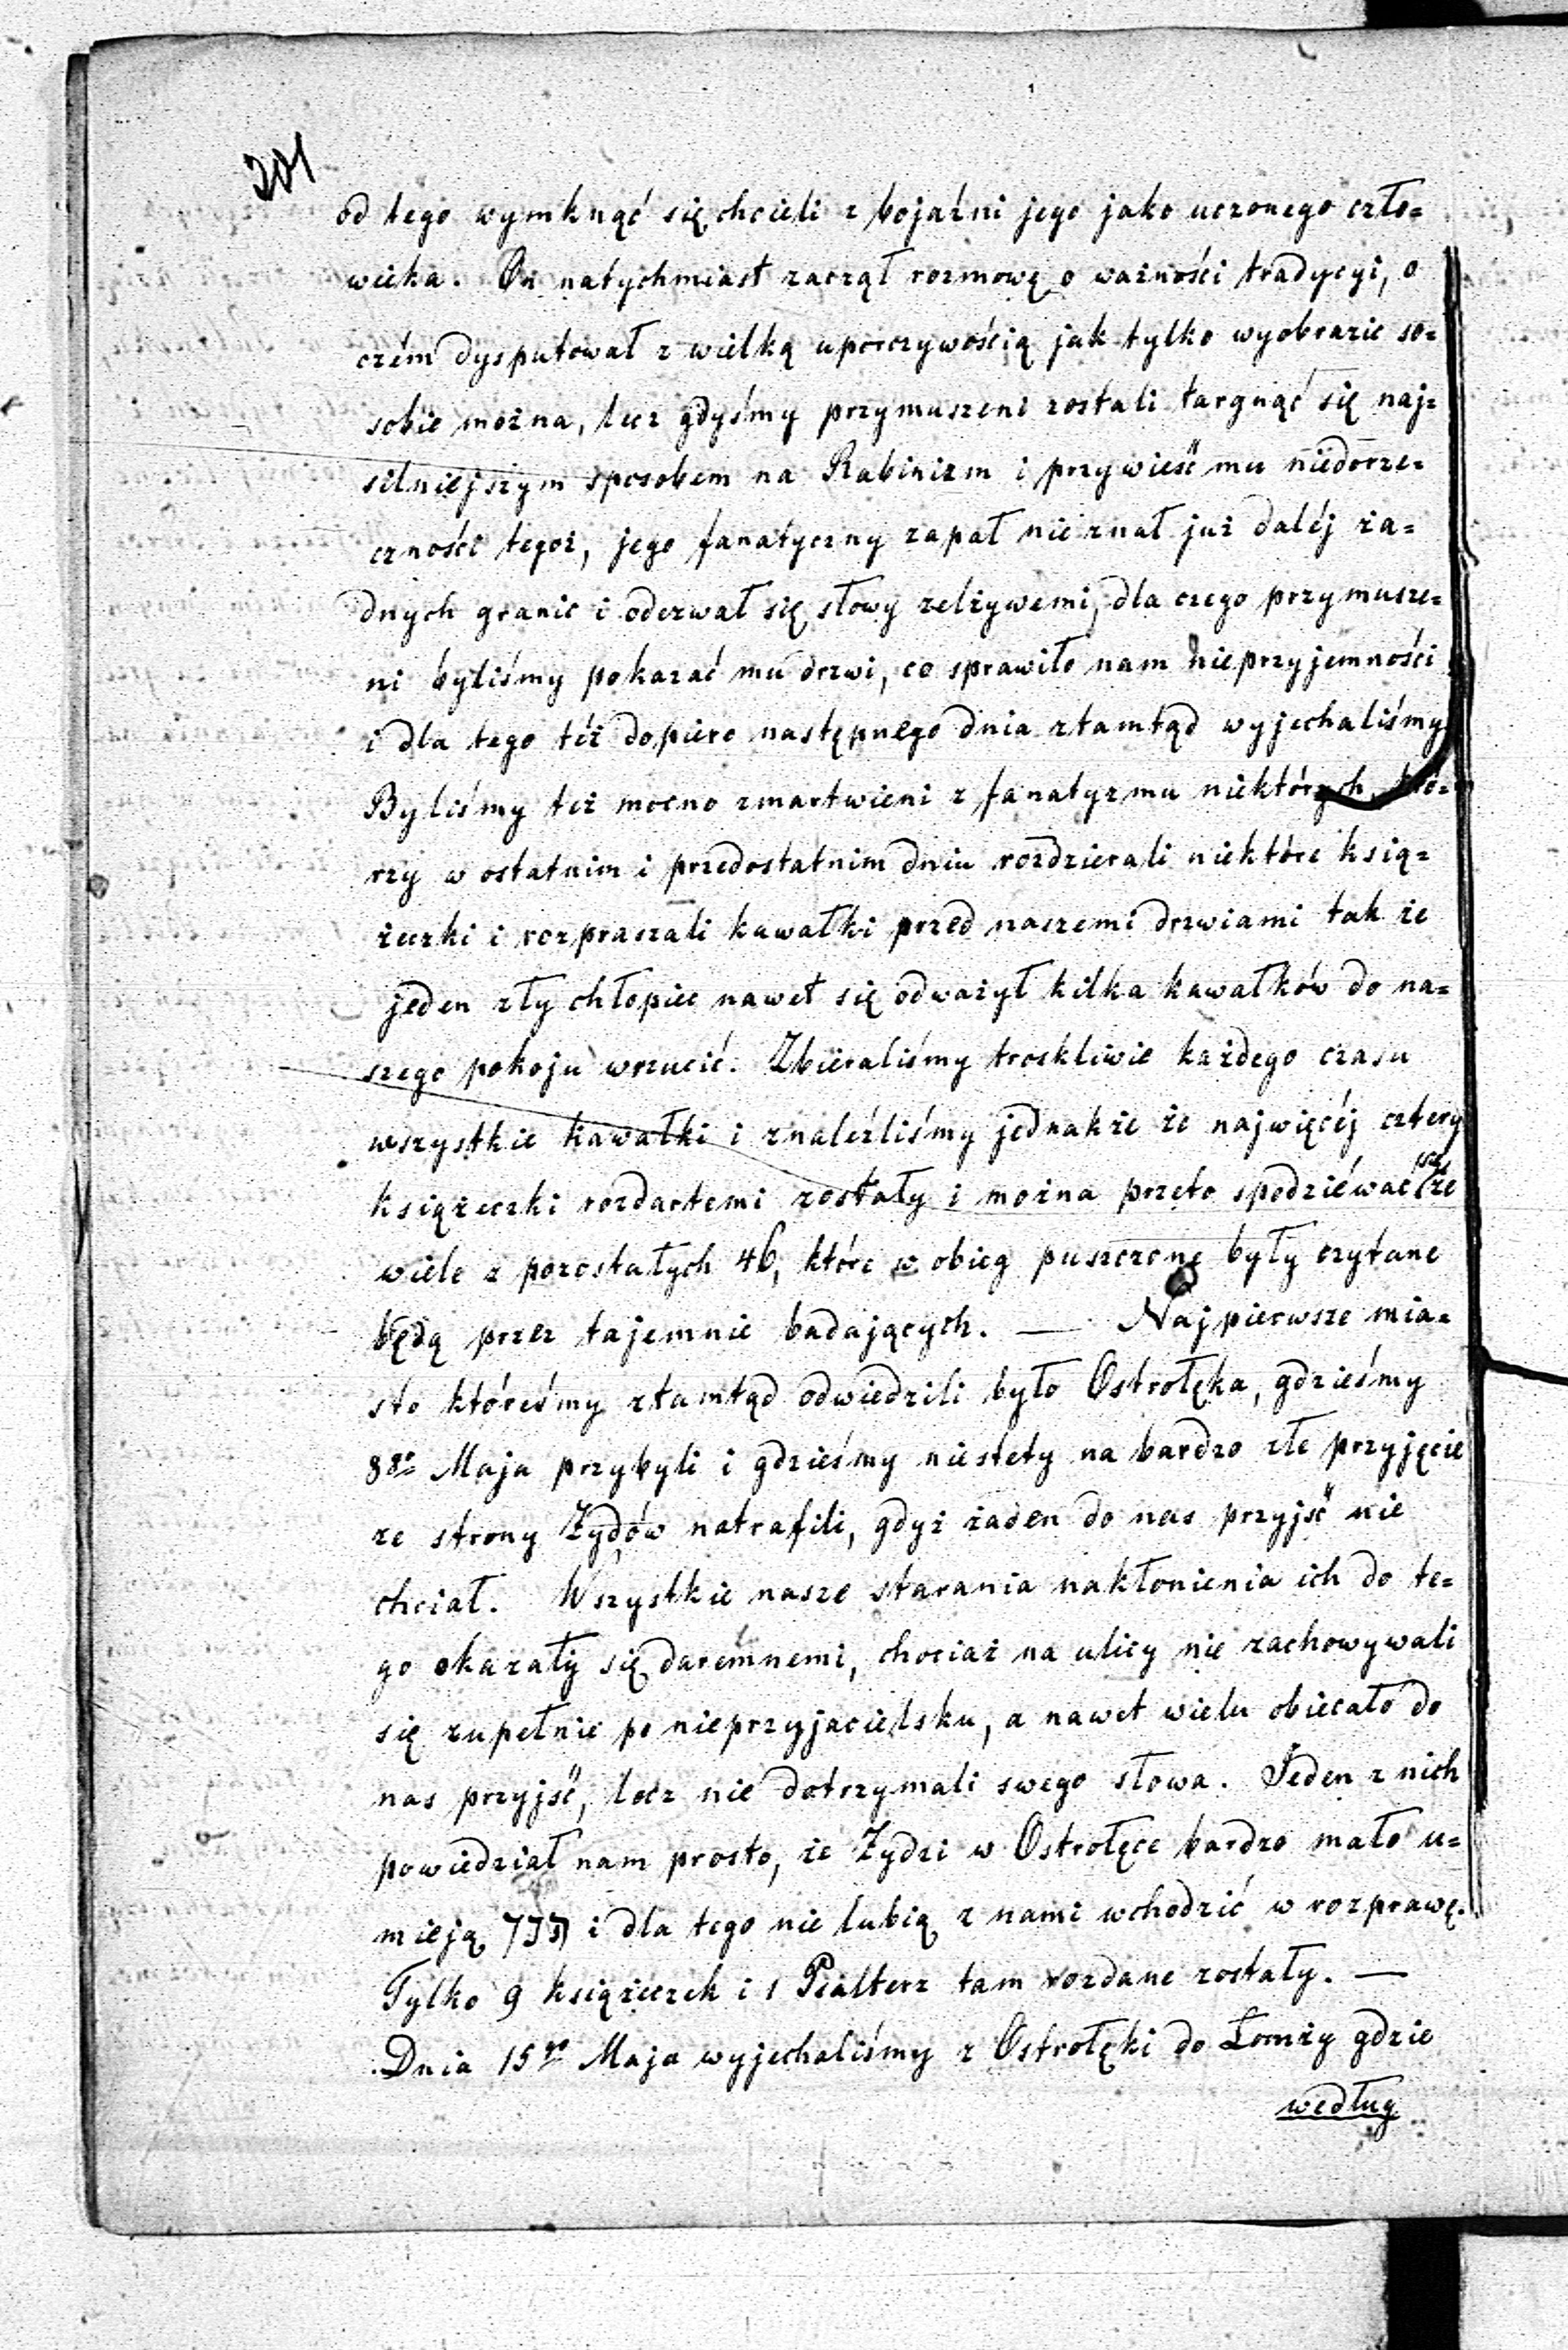 201
od tego wymknąć się chcieli z bojaźni jego jako uczonego czło=
wieka. On natychmiast zaczął rozmowę o ważności tradycyi, o
czém dysputował z wielką uporczywością jak tylko wyobrazić so=
sobie można, lecz gdyśmy przymuszeni zostali targnąć się naj=
silniejszym sposobem na Rabinizm i przywieść mu niedorze=
czności tegoż, jego fanatyczny zapał nie znał już daléj ża=
dnych granic i odezwał się słowy zelżywemi, dla czego przymusze=
ni byliśmy pokazać mu drzwi, co sprawiło nam nieprzyjemności
i dla tego téż dopiero następnego dnia ztamtąd wyjechaliśmy
Byliśmy też mocno zmartwieni z fanatyzmu niektórych, któ=
rzy w ostatnim i przedostatnim dniu rozdzierali niektóre ksią=
żeczki i rozpraszali kawałki przed naszemi drzwiami tak że
jeden zły chłopiec nawet się odważył kilka kawałków do na=
szego pokoju wrzucić. Zbieraliśmy troskliwie każdego czasu
wszystkie kawałki i znaleźliśmy jednakże że najwięcéj cztery
książeczki rozdartemi zostały i można przeto spodziéwać się że
wiele z pozostałych 46, które w obieg puszczone były czytane
będą przez tajemnie badających. — Najpierwsze mia=
sto któreśmy ztamtąd odwiedzili było Ostrołęka, gdzieśmy
8go Maja przybyli i gdzieśmy niestety na bardzo złe przyjęcie
ze strony Żydów natrafili, gdyż żaden do nas przyjść nie
chciał. Wszystkie nasze starania nakłonienia ich do te=
go okazały się daremnemi, chociaż na ulicy nie zachowywali
się zupełnie po nieprzyjacielsku, a nawet wielu obiecało do
nas przyjść, lecz nie dotrzymali swego słowa. Jeden z nich
powiedział nam prosto, że Żydzi w Ostrołęce bardzo mało u=
mieją i dla tego nie lubią z nami wchodzić w rozprawę.
Tylko 9 książeczek i 1 Psałterz tam rozdane zostały. —
Dnia 15go Maja wyjechaliśmy z Ostrołęki do Łomży gdzie
według